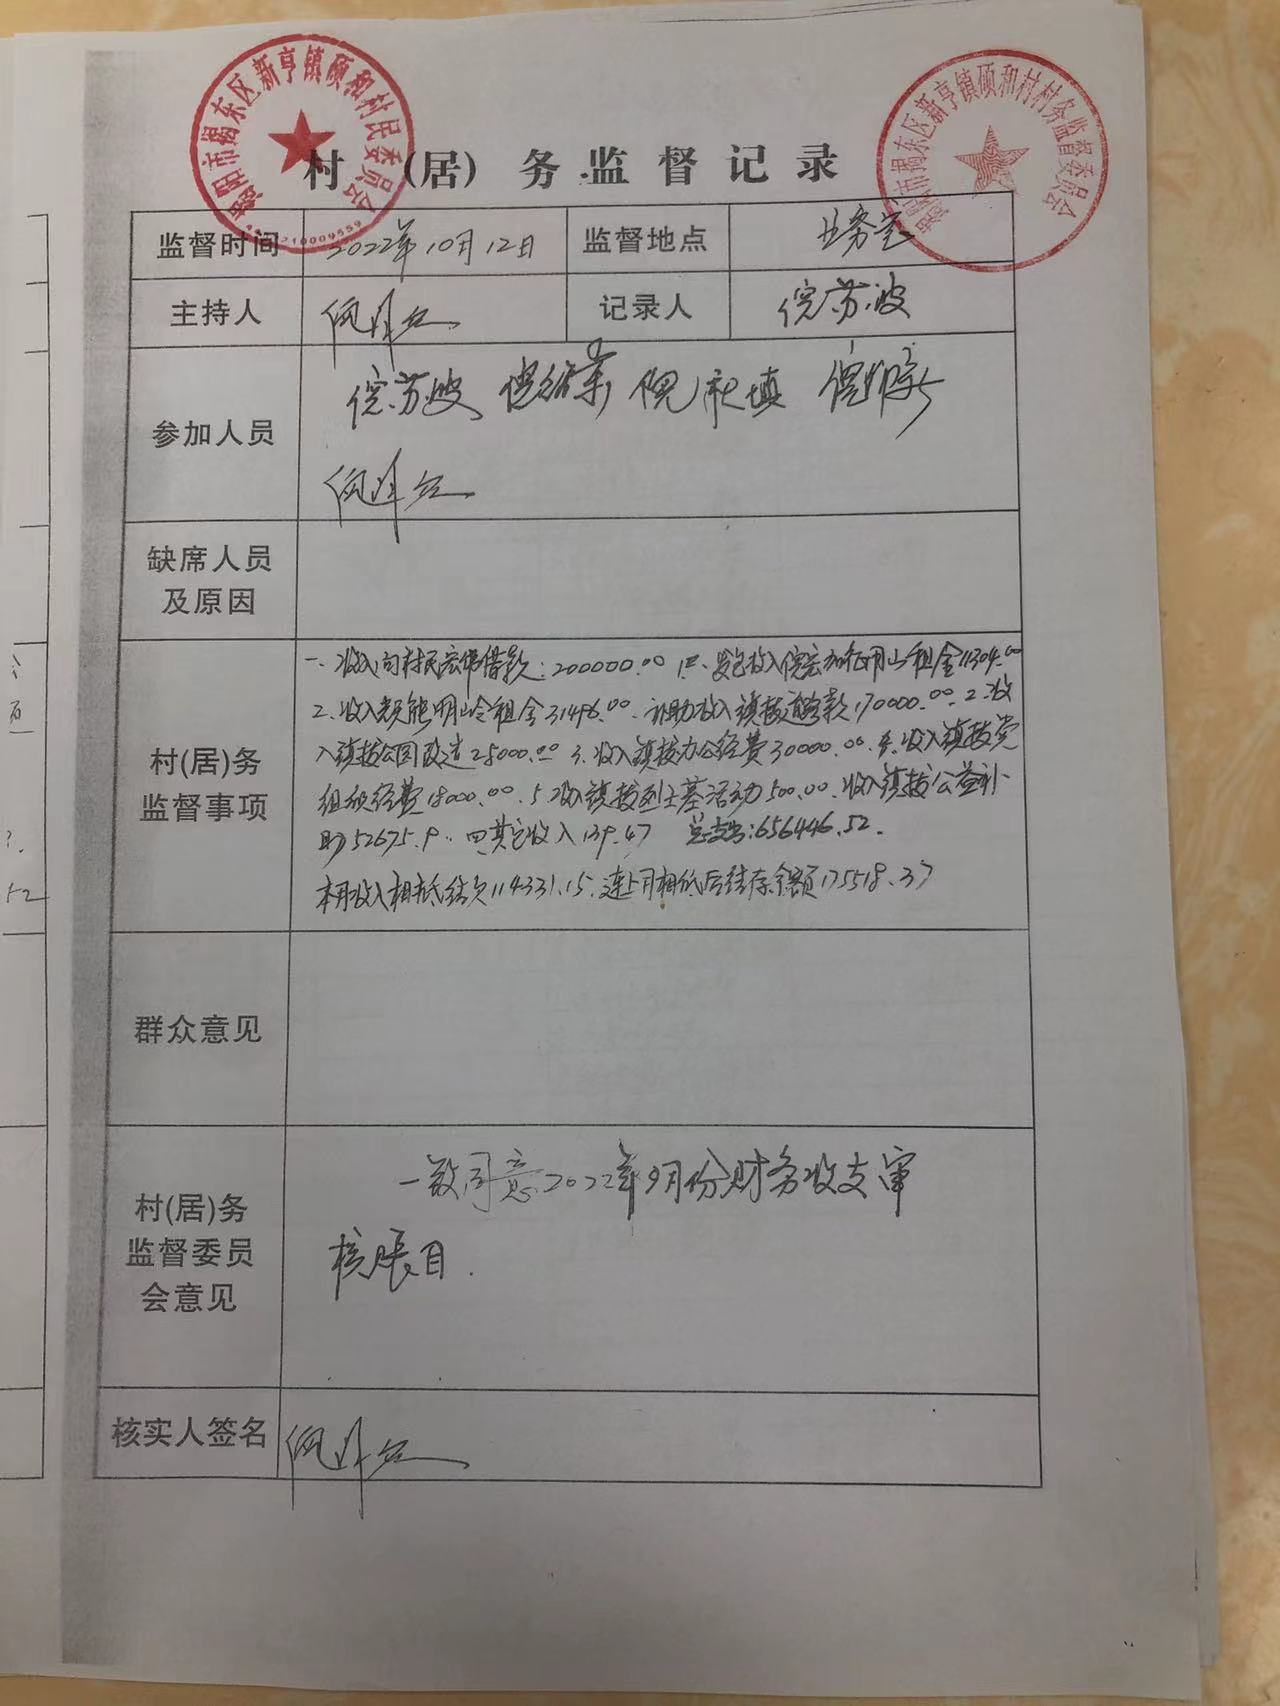 揭阳市揭东区新亨镇硕和村民委员会
揭阳市揭东区新亨镇硕和村村务监督委员会
村(居)务监督记录
监督时间 2022年10月12日 监督地点 业务室
主持人 记录人 倪苏波
参加人员 倪苏波
缺席人员
及原因
一、收入向村民宏伟借款:200000.00 发包收入倪宏 山租金11304.00
2、收入 明山岭租金31496.00. 补助收入镇拨道路款170000.00. 2.收
村(居)务
监督事项
入镇拨公园改造25000.00 3.收入镇拨办公经费30000.00. 4.收入镇拨党
组织经费18000.00. 5.收入镇拨烈士墓活动500.00. 收入镇拨公益补
助52675.9. 四其它收入139.47 总支出:656446.52.
本月收入相抵结欠114331.15. 连上月相抵后结存余额175518.37
群众意见
村(居)务
监督委员
会意见
一致同意2022年9月份财务收支审
核账目.
核实人签名
52